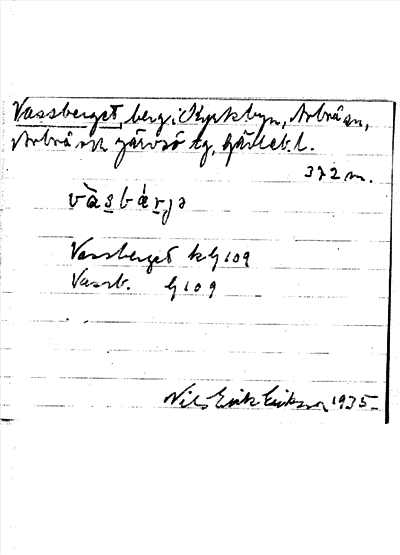 Vassberget, berg i Kyrkbyn, Arbrå sn,
Arbrå och Järvsö tg, Gävlebl.
372 m.
vàsbárjə
Vassberget kG109
Vassb. G109
Nils Erik Eriksson 1935